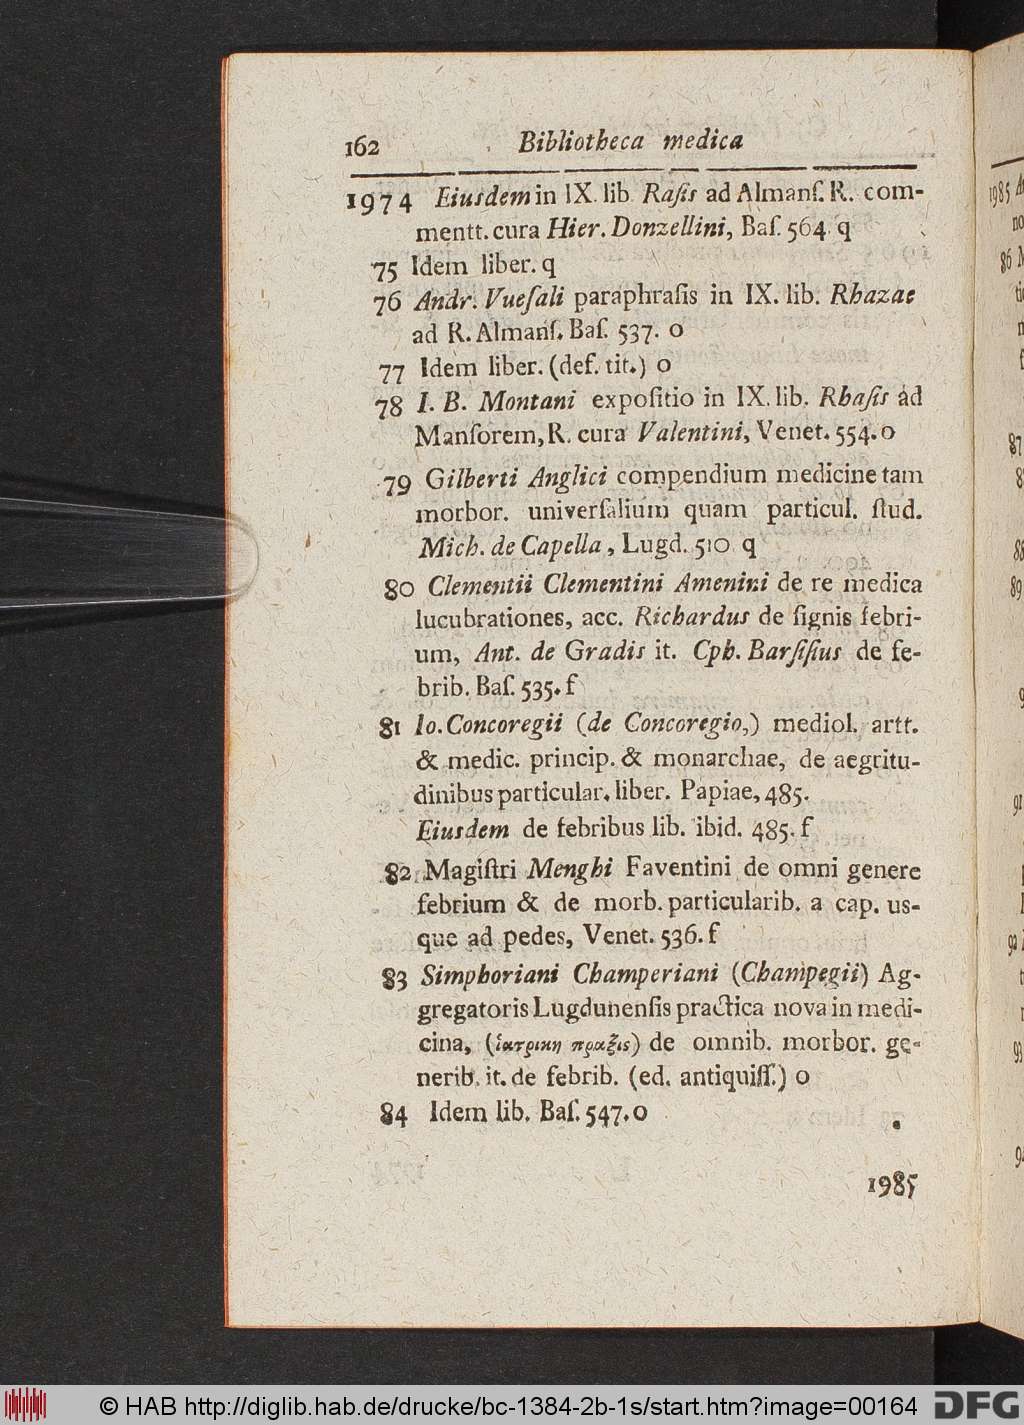 162 Bibliotheca medica
1974 Eiusdem in IX. lib. Raſis ad Almanſ. R. com-
mentt. cura Hier. Donzellini, Baſ. 564. q
75 Idem liber. q
76 Andr. Vueſali paraphraſis in IX. lib. Rhazae
ad R. Almanſ. Baſ. 537. o
77 Idem liber. (def. tit.) o
78 I. B. Montani expoſitio in IX. lib. Rhaſis ad
Manſorem, R. cura Valentini, Venet. 554. o
79 Gilberti Anglici compendium medicine tam
morbor. univerſalium quam particul. ſtud.
Mich. de Capella, Lugd. 510. q
80 Clementii Clementini Amenini de re medica
lucubrationes, acc. Richardus de ſignis febri-
um, Ant. de Gradis it. Cph. Barſiſius de fe-
brib. Baſ. 535. f
81 Io. Concoregii (de Concoregio,) mediol. artt.
& medic. princip. & monarchae, de aegritu-
dinibus particular. liber. Papiae, 485.
Eiusdem de febribus lib. ibid. 485. f
82 Magiſtri Menghi Faventini de omni genere
febrium & de morb. particularib. a cap. us-
que ad pedes, Venet. 536. f
83 Simphoriani Champeriani (Champegii) Ag-
gregatoris Lugdunenſis practica nova in medi-
cina, (ἰατρικη πραξις) de omnib. morbor. ge-
nerib. it. de febrib. (ed. antiquiſſ.) o
84 Idem lib. Baſ. 547. o
1985
1985
86
87
88
89
92
93
© HAB http://diglib.hab.de/drucke/bc-1384-2b-1s/start.htm?image=00164
DFG